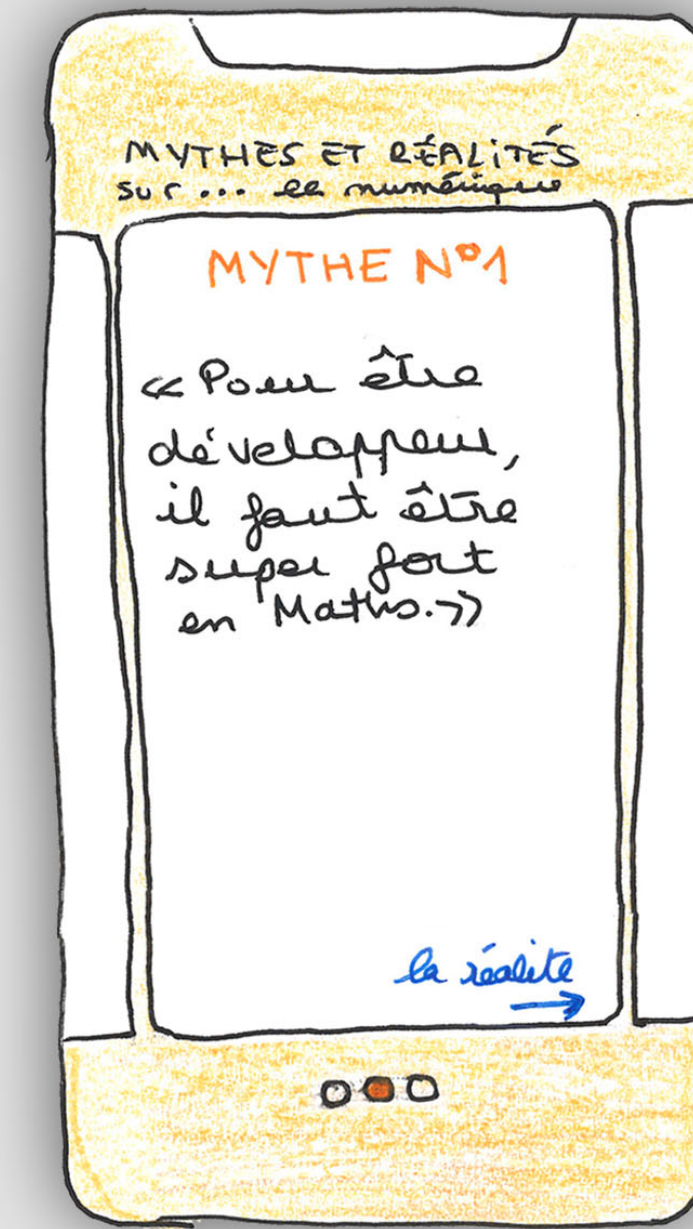 MYTHES ET RÉALITÉS
sur... le numérique
MYTHE N°1
« Pour être
développeur,
il faut être
super fort
en Maths.»
la réalite
→